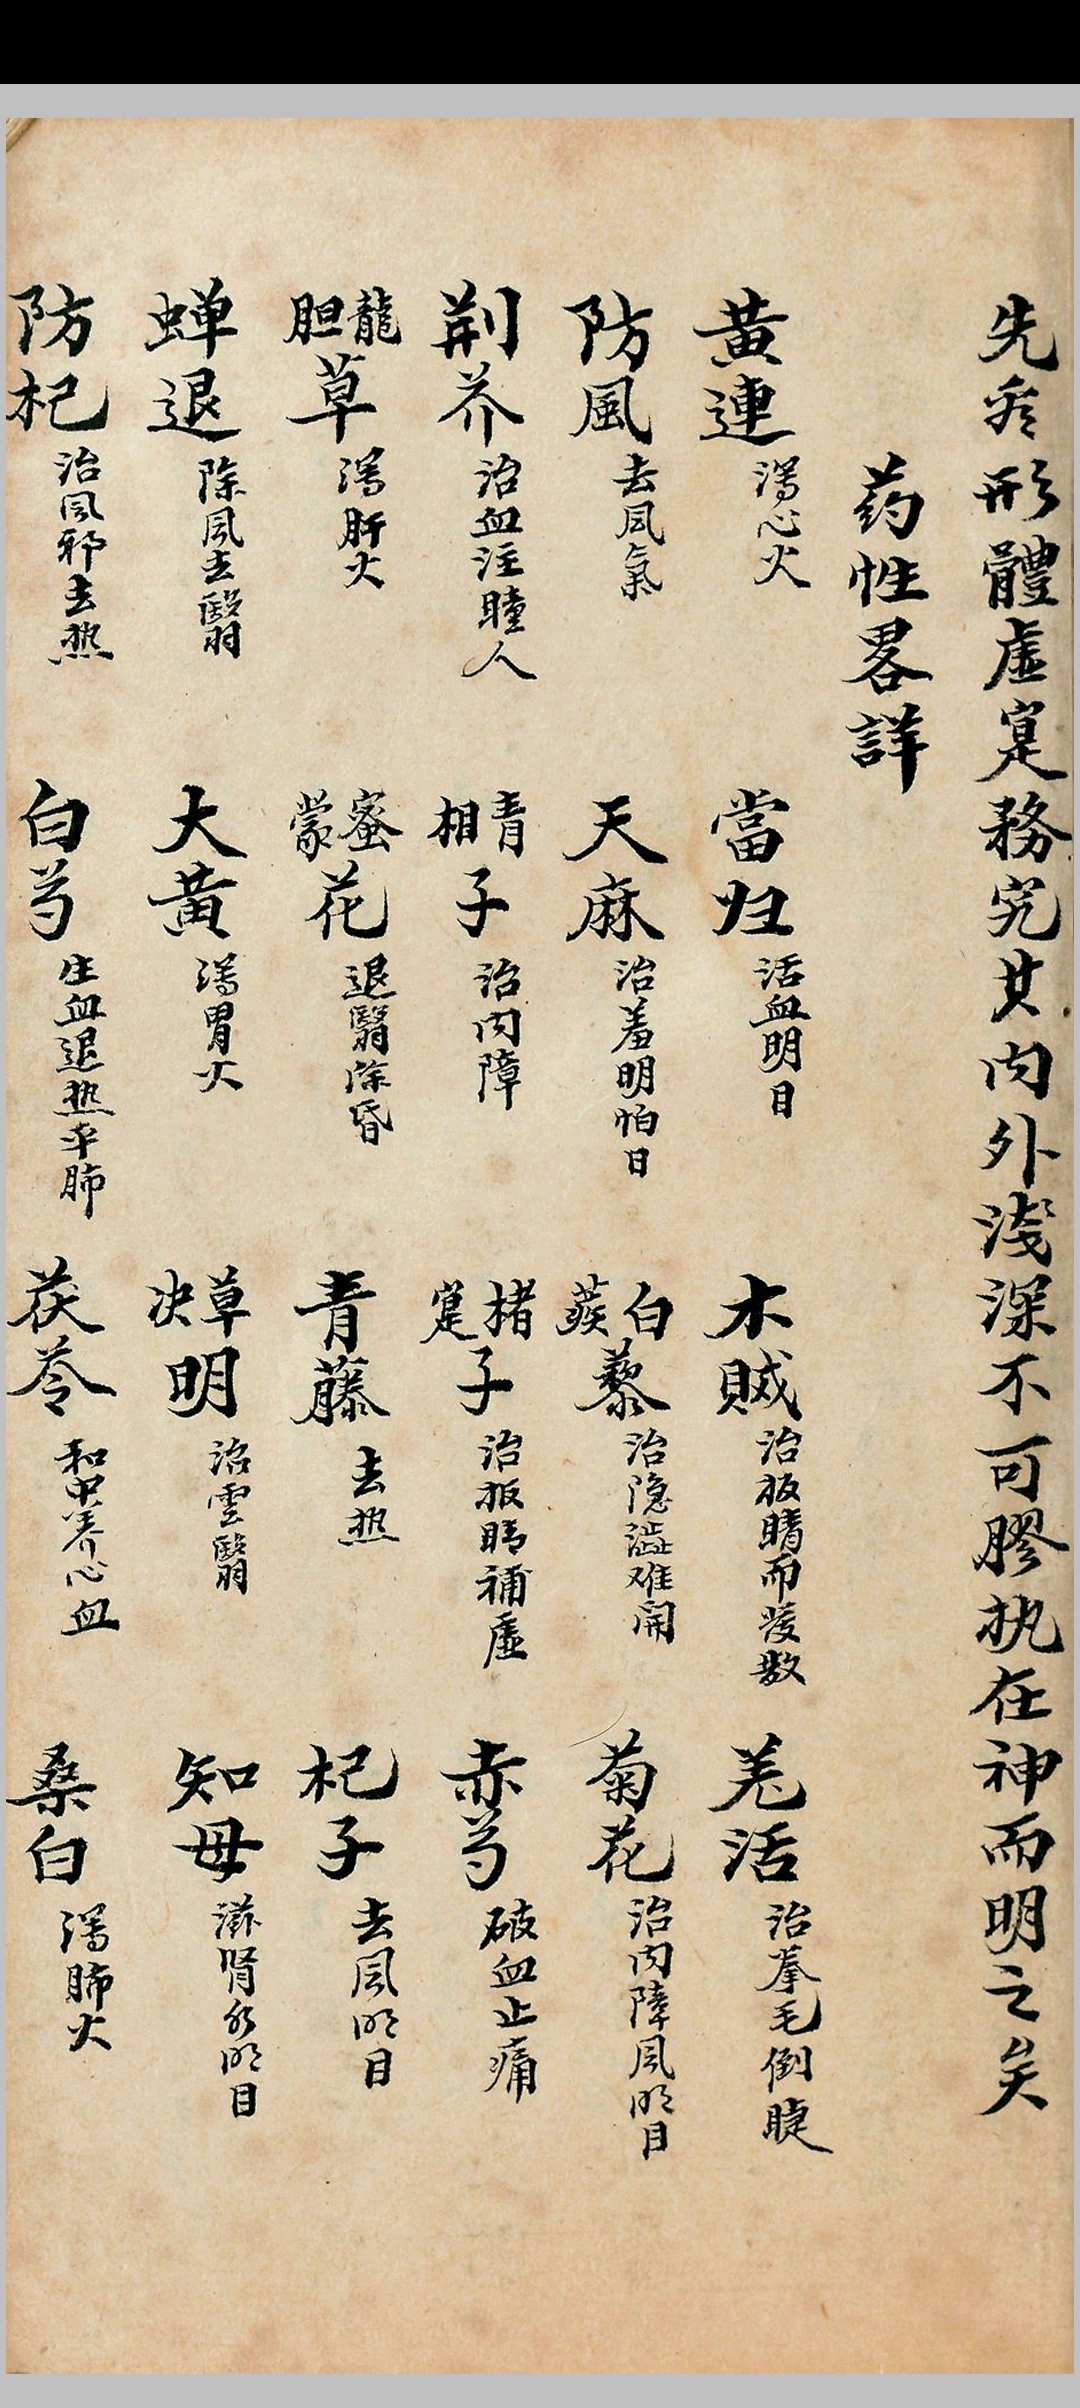 先看形體虛寔務究其内外淺深不可膠执在神而明之矣
药性畧詳
黄連 瀉心火 當归 活血明目 木賊 治扳睛而发散 羌活 治拳毛倒睫
防風 去风氣 天麻 治羞明怕日 白蒺藜 治隐澁难開 菊花 治内障风明目
荆芥 治血注瞳人 青相子 治内障 楮寔子 治扳睛補虛 赤芍 破血止痛
龍胆草 瀉肝火 蜜蒙花 退翳除昏 青藤 去热 杞子 去风明目
蝉退 除风去翳 大黄 瀉胃火 草决明 治雲翳 知母 滋腎水明目
防杞 治风邪去热 白芍 生血退热平肺 茯苓 和中养心血 桑白 瀉肺火